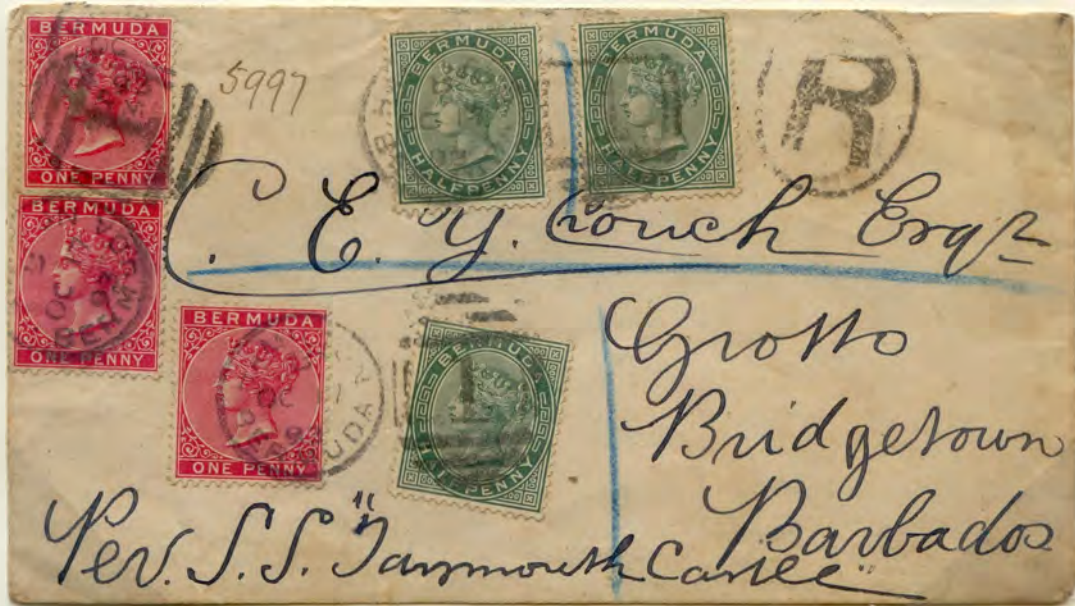 BERMUDA
ONE PENNY
5997
BERMUDA
HALFPENNY
BERMUDA
HALFPENNY
R
C. E. Y. Couch Esqr
BERMUDA
ONE PENNY
BERMUDA
ONE PENNY
BERMUDA
HALFPENNY
1
Grotto
Bridgetown
Barbados
Per. S.S. "Taymouth Castle"